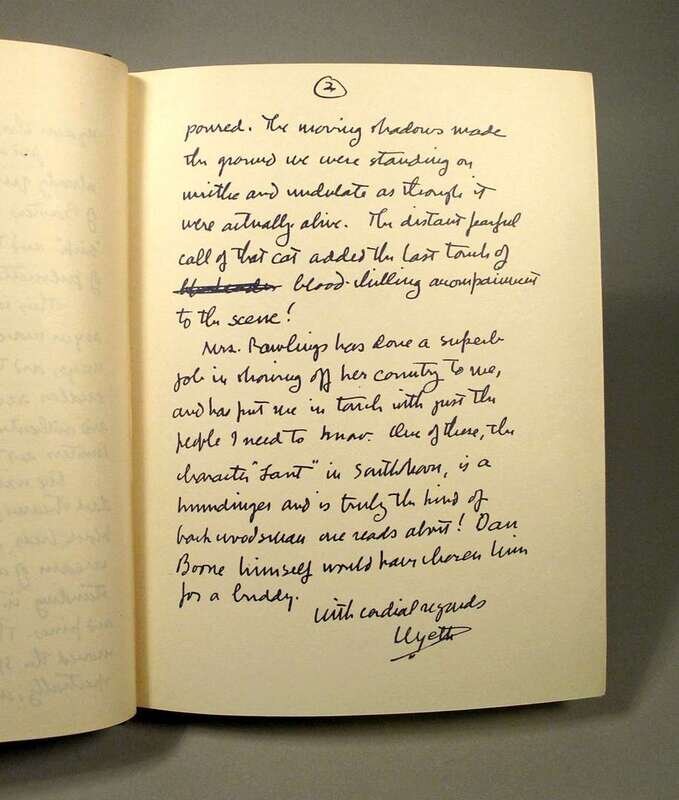 2
poured. The moving shadows made
the ground we were standing on
writhe and undulate as though it
were actually alive. The distant fearful
call of that cat added the last touch of
blood-chilling accompaniment
to the scene!
Mrs. Rawlings has done a superb
job in showing off her country to me,
and has put me in touch with just the
people I need to know. One of these, the
character "Lant" in South Moon, is a
humdinger and is truly the kind of
backwoodsman one reads about! Dan
Boone himself would have chosen him
for a buddy.
With cordial regards
Wyeth